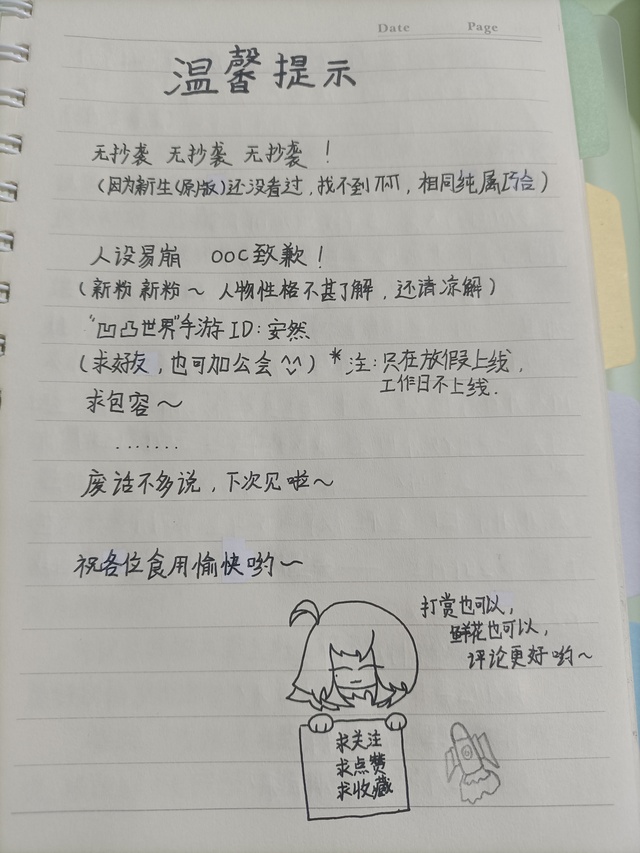 Date Page
温馨提示
无抄袭 无抄袭 无抄袭 !
(因为新生(原版)还没看过,找不到TTT,相同纯属巧合)
人设易崩 OOC致歉!
(新粉 新粉~ 人物性格不甚了解,还请凉解)
"凹凸世界"手游ID:安然
(求好友,也可加公会^^) *注:只在放假上线,
工作日不上线.
求包容~
.......
废话不多说,下次见啦~
祝各位食用愉快哟~
打赏也可以,
鲜花也可以,
评论更好哟~
求关注
求点赞
求收藏